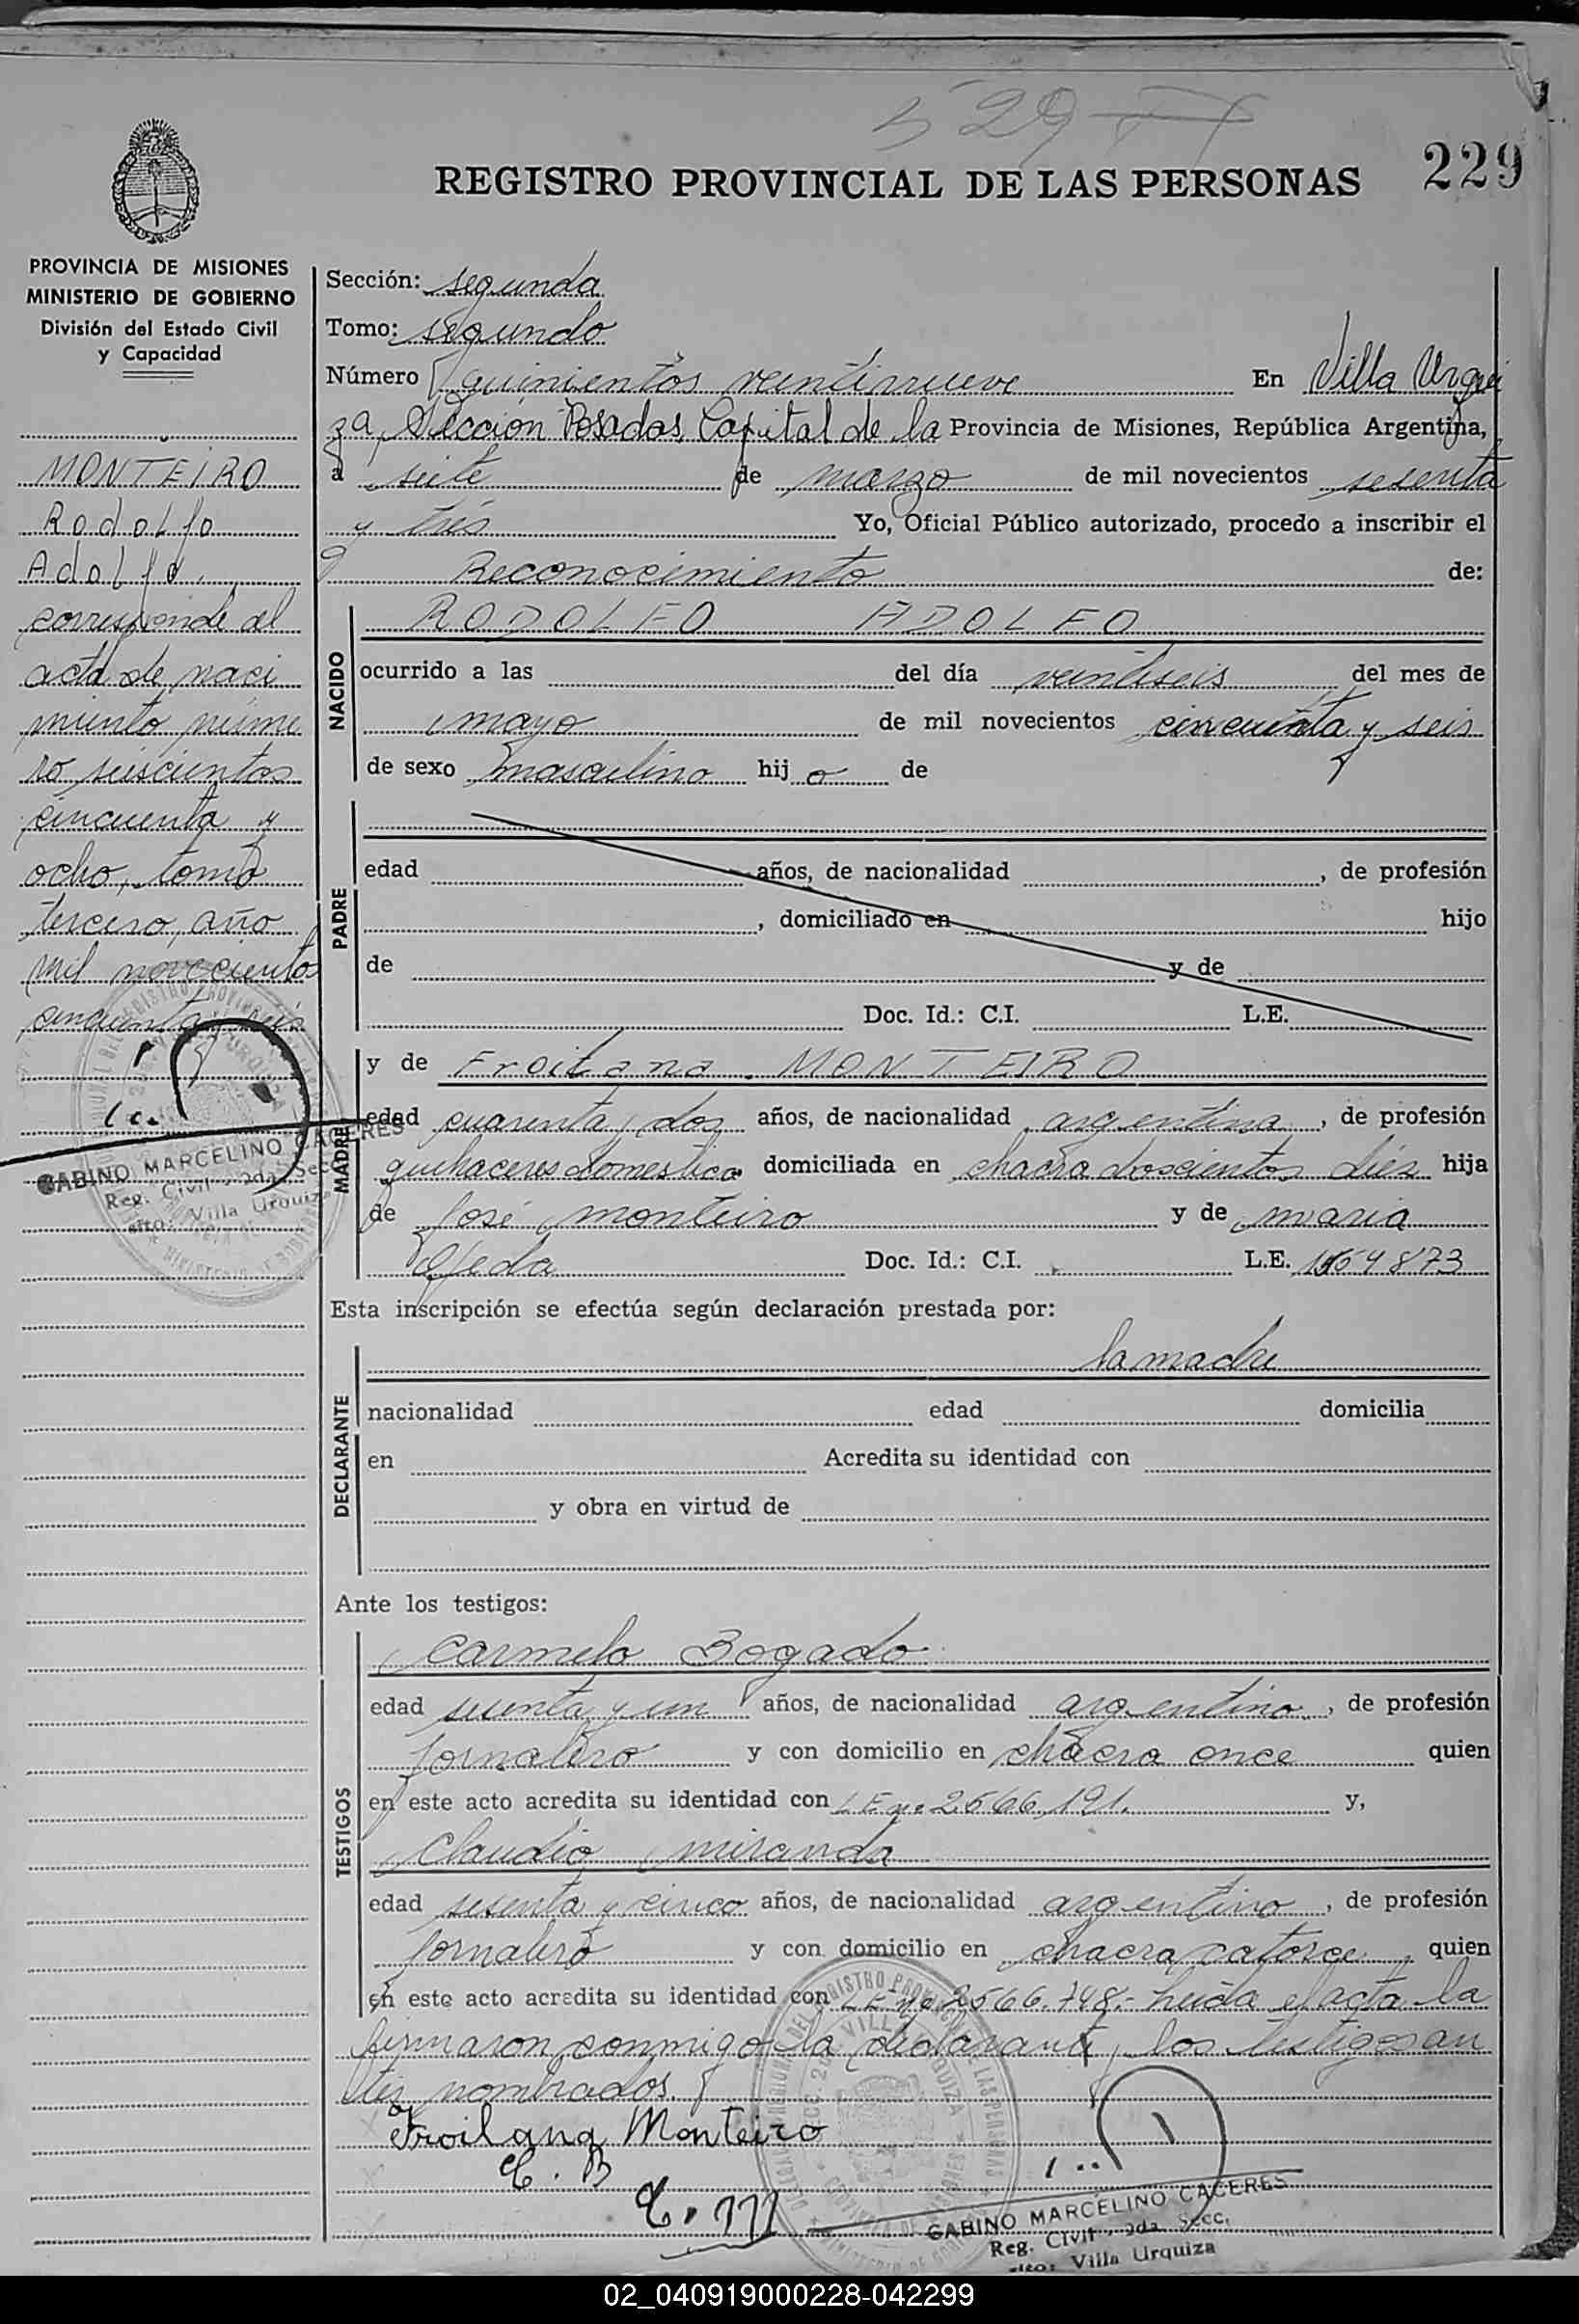 529
REGISTRO PROVINCIAL DE LAS PERSONAS 229
PROVINCIA DE MISIONES
MINISTERIO DE GOBIERNO
División del Estado Civil
y Capacidad
MONTEIRO
Rodolfo
Adolfo.
corresponde al
acta de naci
miento núme
ro seiscientos
cincuenta y
ocho, tomo
tercero, año
mil novecientos
cincuenta y seis
GABINO MARCELINO CACERES
Reg. Civil 2da Secc.
Villa Urquiza
Sección: segunda
Tomo: segundo
Número quinientos veintinueve En Villa Urqui
za, Sección Posadas, Capital de la Provincia de Misiones, República Argentina,
a siete de marzo de mil novecientos sesenta
y tres Yo, Oficial Público autorizado, procedo a inscribir el
Reconocimiento de:
NACIDO
RODOLFO ADOLFO
ocurrido a las del día veintiseis del mes de
mayo de mil novecientos cincuenta y seis
de sexo masculino hij o de
PADRE
edad años, de nacionalidad , de profesión
, domiciliado en hijo
de y de
Doc. Id.: C.I. L.E.
MADRE
y de Froilana MONTEIRO
edad cuarenta y dos años, de nacionalidad argentina, de profesión
quehaceres domesticos domiciliada en chacra doscientos diez hija
de José monteiro y de maria
Ojeda Doc. Id.: C.I. L.E.
Esta inscripción se efectúa según declaración prestada por:
DECLARANTE
la madre
nacionalidad edad domicilia
en Acredita su identidad con
y obra en virtud de
Ante los testigos:
TESTIGOS
Carmelo Bogado
edad sesenta y un años, de nacionalidad argentino, de profesión
Jornalero y con domicilio en chacra once quien
en este acto acredita su identidad con L E nº 2566.191. y,
Claudio miranda
edad sesenta y cinco años, de nacionalidad argentino, de profesión
Jornalero y con domicilio en chacra catorce, quien
en este acto acredita su identidad con L E nº 2566.748.- Leída el acta la
firmaron conmigo la declarante, los testigos an
tes nombrados.
Froilana Monteiro
C. B
C. M
GABINO MARCELINO CACERES
Reg. Civil 2da Secc.
Villa Urquiza
02_040919000228-042299